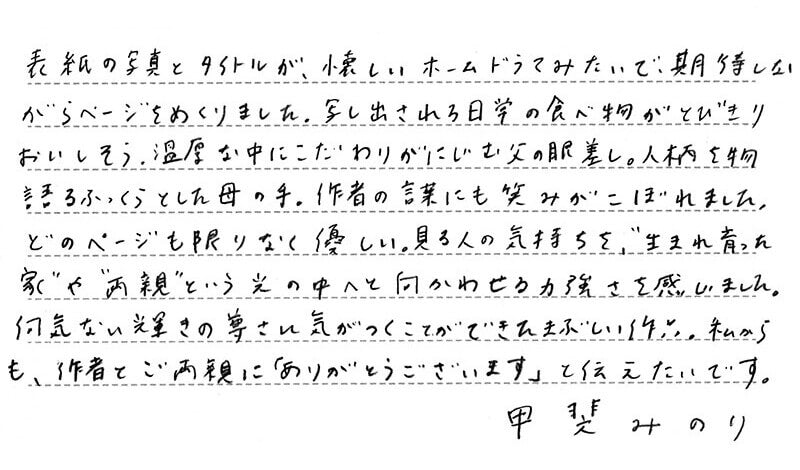 表紙の写真とタイトルが、懐しいホームドラマみたいで、期待しな
がらページをめくりました。写し出される日常の食べ物がとびきり
おいしそう。温厚な中にこだわりがにじむ父の眼差し。人柄を物
語るふっくらとした母の手。作者の言葉にも笑みがこぼれました。
どのページも限りなく優しい。見る人の気持ちを、"生まれ育った
家"や"両親"という光の中へと向かわせる力強さを感じました。
何気ない輝きの尊さに気がつくことができたまぶしい作品。私から
も、作者とご両親に「ありがとうございます」と伝えたいです。
甲斐みのり